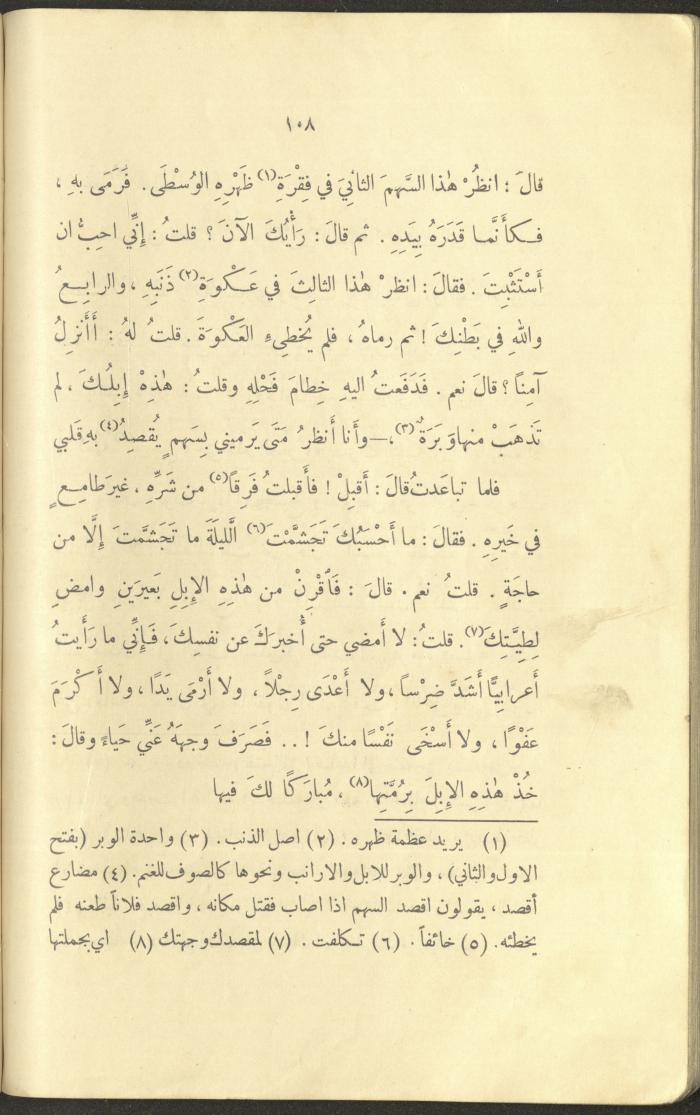 ١٠٨
قالَ : انظُرْ هٰذا السَّهمَ الثانيَ في فِقْرَةِ(١) ظَهْرِهِ الوُسْطَى. فَرَمَى بهِ ،
فـكأَنَّمـا قَدَرَهُ بِيَدِهِ . ثم قالَ : رَأْيُكَ الآنَ ؟ قلتُ : إِنِّي احبُّ ان
أَسْتَثْبِتَ . فقالَ : انظرْ هٰذا الثالِثَ في عَـكْوَةِ(٢) ذَنَبِهِ ، والرابِـعُ
واللهِ في بَطْنِكَ ! ثم رماهُ ، فلم يُخطِىءِ العَكْوَةَ . قلتُ لهُ : أَأَنزِلُ
آمِناً ؟ قالَ نعم . فَدَفَعتُ اليهِ خِطامَ فَحْلِهِ وقلتُ : هٰذِهْ إِبِلُـكَ ، لم
تَذهَبْ منهاوَبَرَةٌ(٣) ،—وأَنا أَنظرُ مَتَى يَرميني بِسَهمٍ يُقصِدُ(٤) بهِ قلبي
فلما تباعَدتُ قالَ : أَقبِلْ ! فأَقبلتُ فَرِقاً(٥) من شَرِّهِ ، غيرَ طامِـعٍ
في خَيرِهِ . فقالَ : ما أَحْسَبُكَ تَجَشَّمْتَ(٦) الَّليلَةَ ما تَجَشَّمتَ إِلَّا من
حاجَةٍ . قلتُ نعم . قالَ : فَاقْرِنْ من هٰذِهِ الإِبِلِ بَعيرَينِ وامضِ
لِطِيَّتِكَ(٧). قلتُ : لا أَمضي حتى أُخبرَكَ عن نفسِكَ ، فَإِنِّي ما رَأَيتُ
أَعرابِيًّا أَشَدَّ ضِرْساً ،ولا أَعْدَى رِجْلاً ، ولا أَرْمَى يَدًا ، ولا أَكْرَمَ
عَفْوًا ، ولا أَسْخَى نَفْسًا منكَ ! . . فَصَرَفَ وجهَهُ عَنِّي حَياءً وقالَ :
خُذْ هٰذِهِ الإِبِلَ بِرُمَّتِها(٨) ، مُبارَكًا لكَ فيها
(١) يريد عظمة ظهره . (٢) اصل الذنب . (٣) واحدة الوبر (بفتح
الاول والثاني) ، والوبر للابل والارانب ونحوها كالصوف للغنم. (٤) مضارع
أقصد ، يقولون اقصد السهم اذا اصاب فقتل مكانه ، واقصد فلاناً طعنه فلم
يخطئه. (٥) خائفاً . (٦) تـكلفت . (٧) لمقصدك وجهتك (٨) اي بجملتها